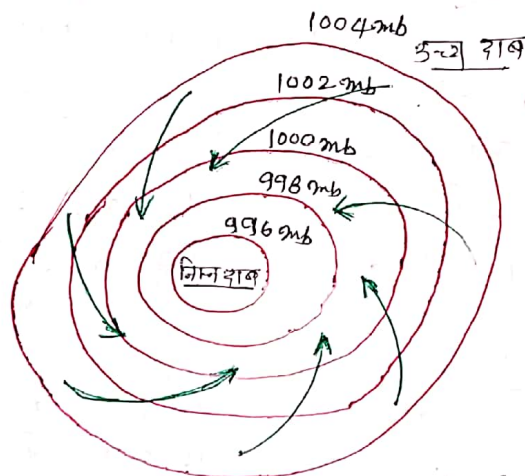 1004 mb
उच्च दाब
1002 mb
1000 mb
998 mb
996 mb
निम्न दाब